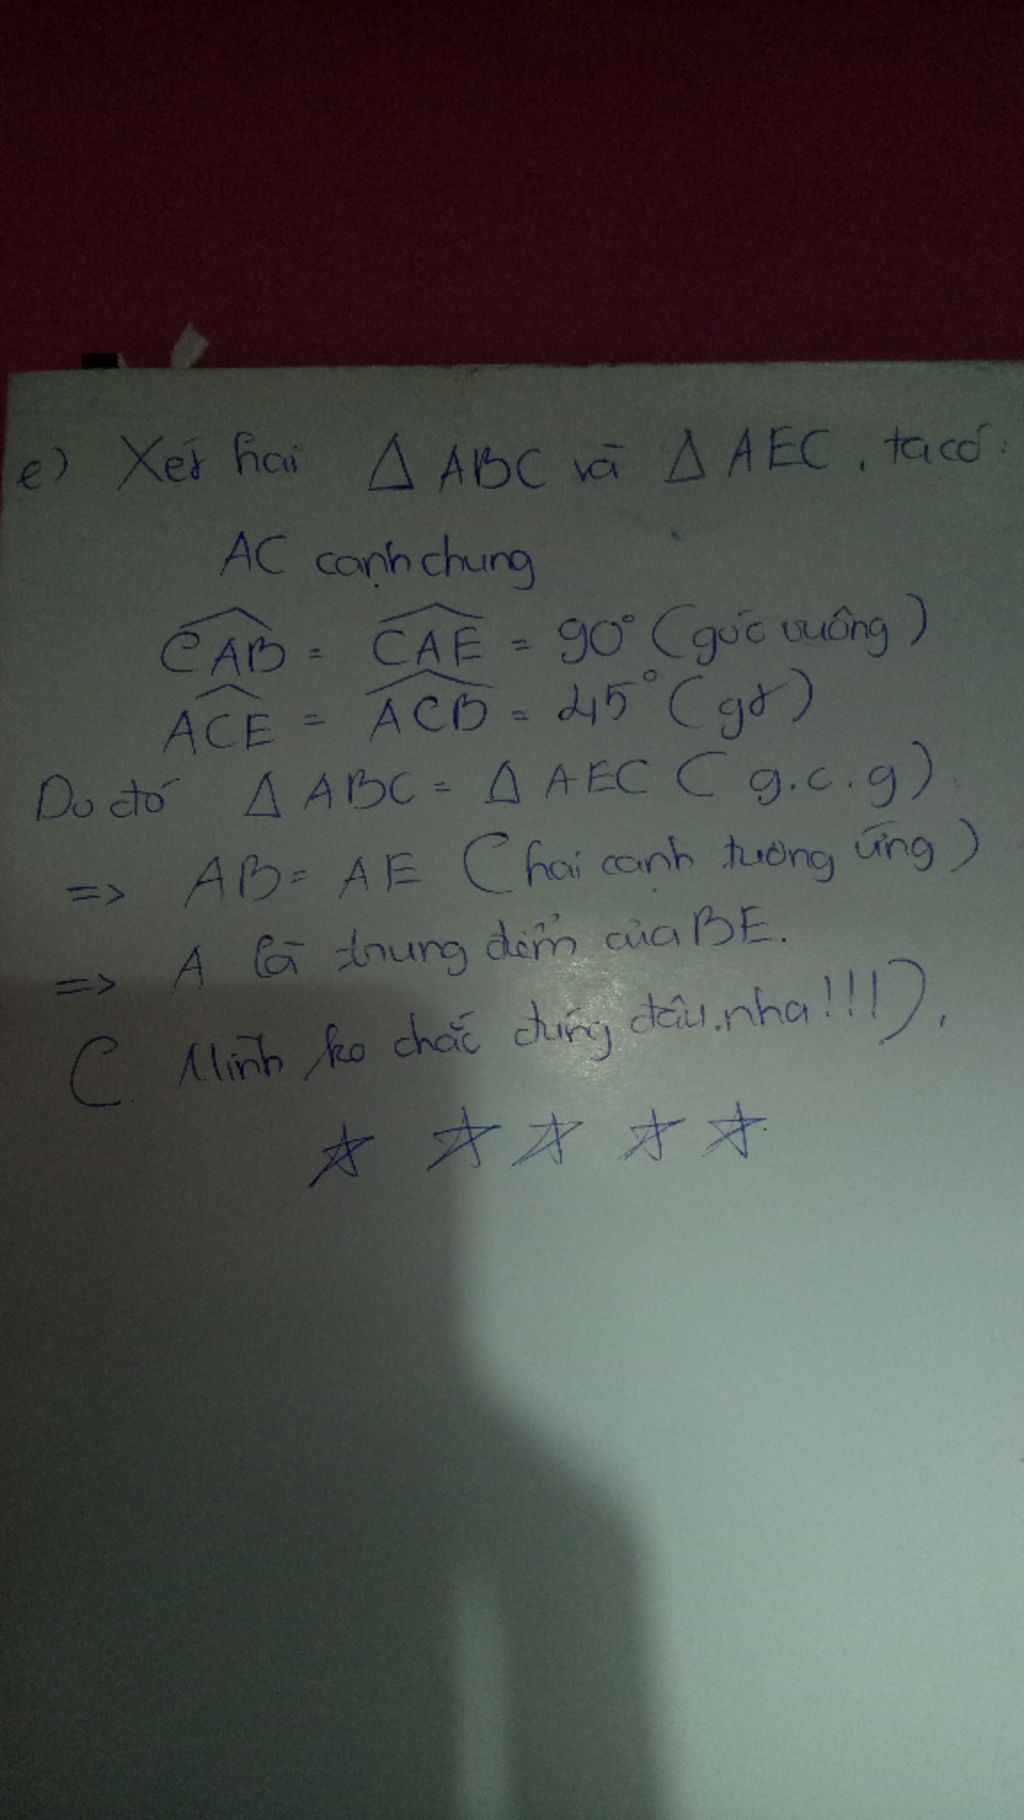 e) Xét hai Δ ABC và Δ AEC, ta có:
AC cạnh chung
\widehat{CAB} = \widehat{CAE} = 90° (góc vuông)
\widehat{ACE} = \widehat{ACB} = 45° (gt)
Do đó Δ ABC = Δ AEC (g.c.g)
=> AB = AE (hai cạnh tương ứng)
=> A là trung điểm của BE.
( Mình ko chắc đúng đâu nha!!!).
☆ ☆ ☆ ☆ ☆